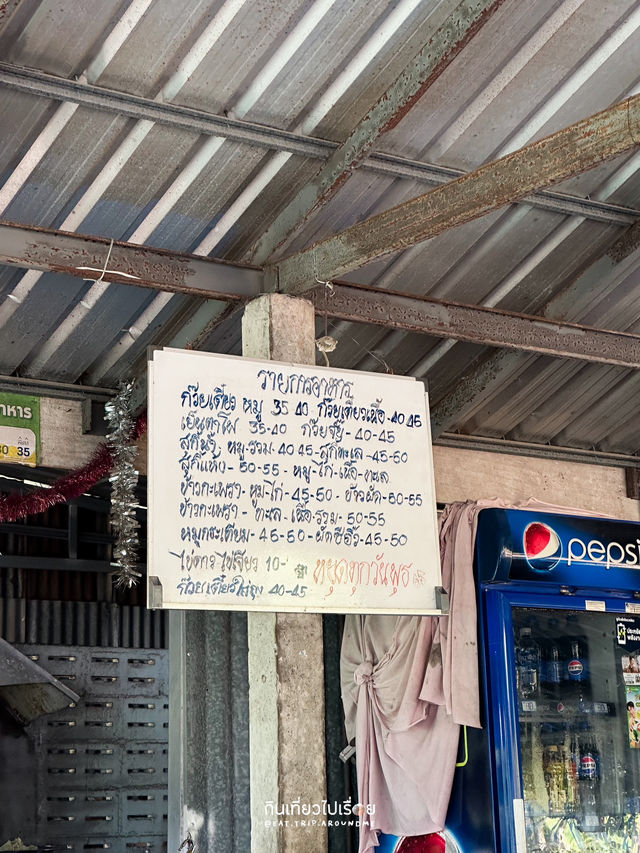 รายการอาหาร
ก๋วยเตี๋ยว หมู 35 40 ก๋วยเตี๋ยวเนื้อ-40 45
เย็นตาโฟ 35-40 ก๋วยจั๊บ-40-45
สุกี้น้ำ หมู-รวม-40 45-สุกี้ทะเล-45-50
สุกี้แห้ง-50-55-หมู-ไก่-เนื้อ-ทะเล
ข้าวกะเพรา-หมูไก่-45-50-ข้าวผัด-50-55
ข้าวกะเพรา-ทะเล-เนื้อ-รวม-50-55
หมูกระเทียม-45-50-ผัดซีอิ๊ว-45-50
ไข่ดาว ไข่เจียว 10- หยุดทุกวันพุธ
ก๋วยเตี๋ยวไก่ตุ๋น 40-45
อาหาร
30 35
pepsi
กินเที่ยวไปเรื่อย
@EAT.TRIP.AROUNDME